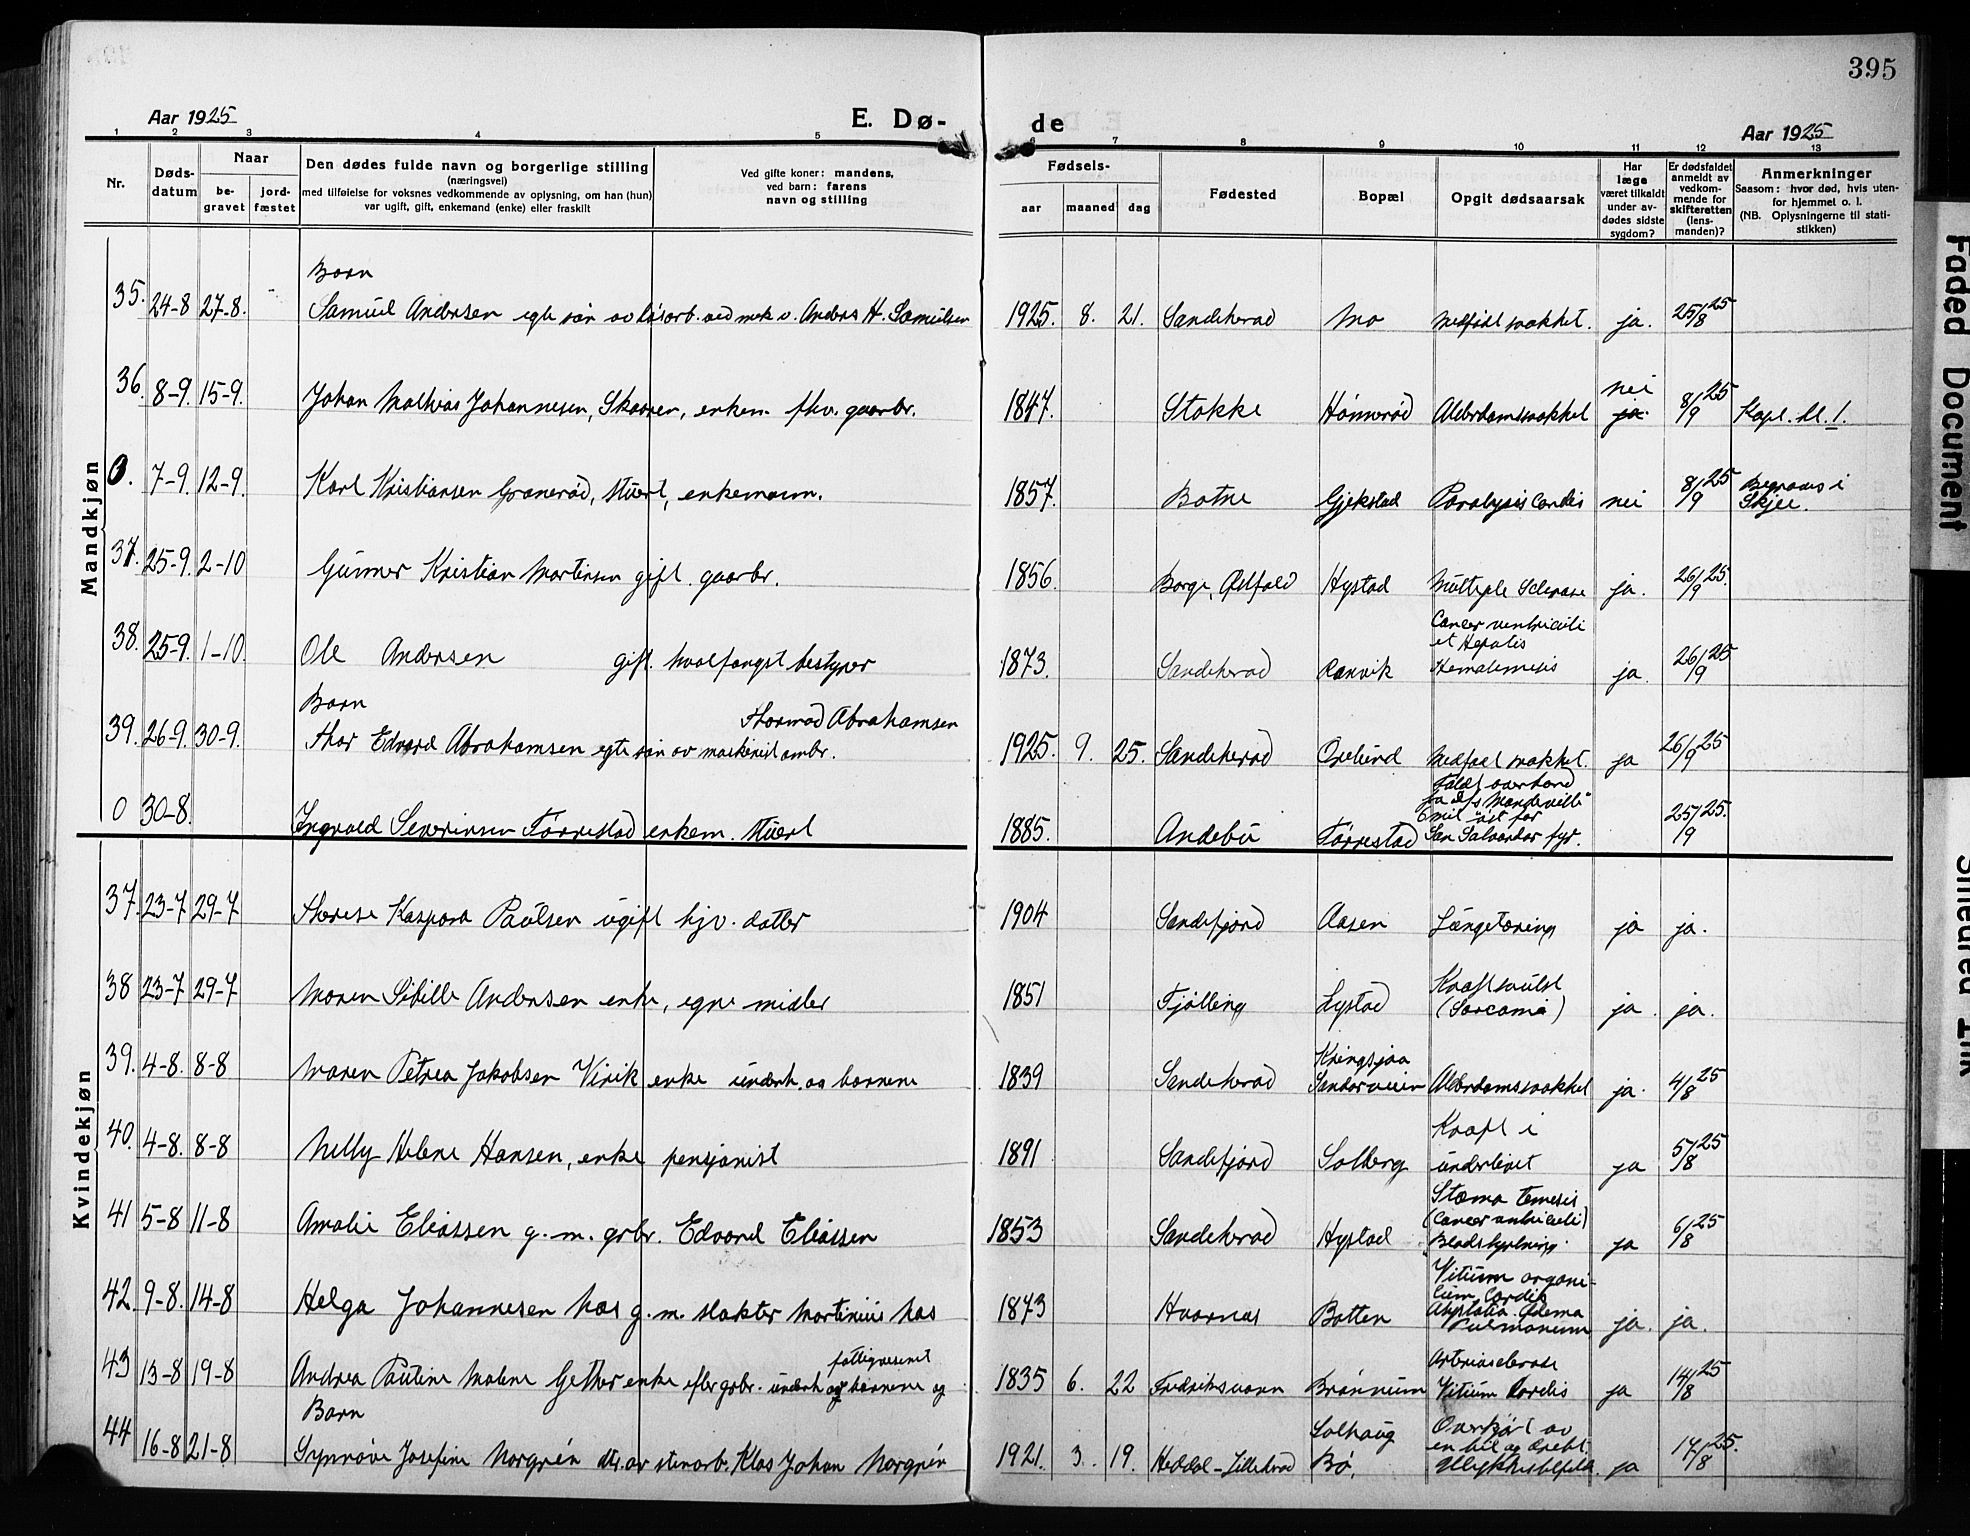 395
Aar 1925 E. Dø- de Aar 1925
1 2 3 4 5 6 7 8 9 10 11 12 13
Nr.
Døds-
datum
Naar
be-
gravet
jord-
fæstet
Den dødes fulde navn og borgerlige stilling
(næringsvei)
med tilføielse for voksnes vedkommende av oplysning, om han (hun)
var ugift, gift, enkemand (enke) eller fraskilt
Ved gifte koner: mandens,
ved barn: farens
navn og stilling
Fødsels-
aar maaned dag
Fødested
Bopæl
Opgit dødsaarsak
Har
læge
været tilkaldt
under av-
dødes sidste
sygdom?
Er dødsfaldet
anmeldt av
vedkom-
mende for
skifteretten
(lens-
manden)?
Anmerkninger
Saasom: hvor død, hvis uten-
for hjemmet o. l.
(NB. Oplysningerne til stati-
stikken)
Mandkjøn
Barn
35. 24-8 27-8. Samuel Andersen egte søn av løsarb. ved mek v. Anders H. Samuelsen 1925. 8. 21. Sandeherad Mo Medfødt svakhet. ja. 25/8 25
nei
36. 8-9. 15-9. Johan Mathias Johannesen, Skaaren, enkem. fhv. gaarbr. 1847. Stokke Alderdomssvakhet ja. 8/9 25 Kapl. kl. 1.
0. 7-9. 12-9. Karl Kristiansen Granerød, stuert, enkemann. 1857. Botne Gjekstad Paralysis Cordis nei 8/9 25 Begraves i
Skjee.
37. 25-9. 2-10 Gunner Kristian Martinsen gift. gaarbr. 1856. Borge, Østfold Hystad Multiple Sclerose ja. 26/9 25.
Cancer ventriculi
et Hepatis
38. 25-9. 1-10. Ole Andersen gift. hvalfangst bestyrer 1873. Sandeherad Ranvik Hematemesis ja. 26/9 25
Barn
Thormod Abrahamsen
39. 26-9. 30-9. Thor Edvard Abrahamsen egte søn av maskinist ombr. 1925. 9. 25. Sandeherad Oselund Medfødt svakhet. ja 26/9 25
Faldt overbord
fra d/s "Mandeville"
6 mil øst for
0 30-8. Ingvald Severinsen Torrestad enkem. stuert 1885. Andebu Torrestad San Salvador fyr. 25/9 25.
Kvindekjøn
37. 23-7 29-7 Therese Kaspara Paulsen ugift hjv. datter 1904 Sandefjord Aasen Lungetæring ja ja.
Kræftsvulst
38 23-7 29-7 Maren Sibille Andersen enke, egne midler 1851 Tjølling Lystad (Sarcoma) ja. ja.
Kringsjaa
39. 4-8. 8-8 Maren Petrea Jakobsen Virik enke underh. av barnene 1839 Sandeherad Sandarveien Alderdomssvakhet ja. 4/8 25
Kræft i
40. 4-8. 8-8 Nelly Helene Hansen, enke pensjonist 1891 Sandefjord Solberg underlivet ja 5/8 25
(Cancer ventriculi)
41 5-8 11-8 Amalie Eliassen g. m. grbr. Edvard Eliassen 1853 Sandeherad Hystad Blodstyrtning. ja 6/8 25
Vitium organi-
cum Cordis
42. 9-8. 14-8 Helga Johannesen Aas g. m. slakter Martinius Aas 1873 Hvarnes Botten Ødema
Pulmonum ja. ja.
fattigvesenet
Arteriosclerose
43 13-8 19-8 Andrea Pauline Malene Gether enke efter grbr. underh av barnene og 1835 6. 22 Fredriksværn Brønnum Vitium Cordis ja 14/8 25
Barn
Solhaug Overkjørt av
en bil og dræbt.
44 16-8 21-8 Synnøve Josefine Norgrén dtr. av stenarb. Klas Johan Norgrén 1921. 3. 19. Heddal-Lilleherad Bø. Ulykkestilfelde. ja 17/8 25.
Faded Document
Smeared Ink